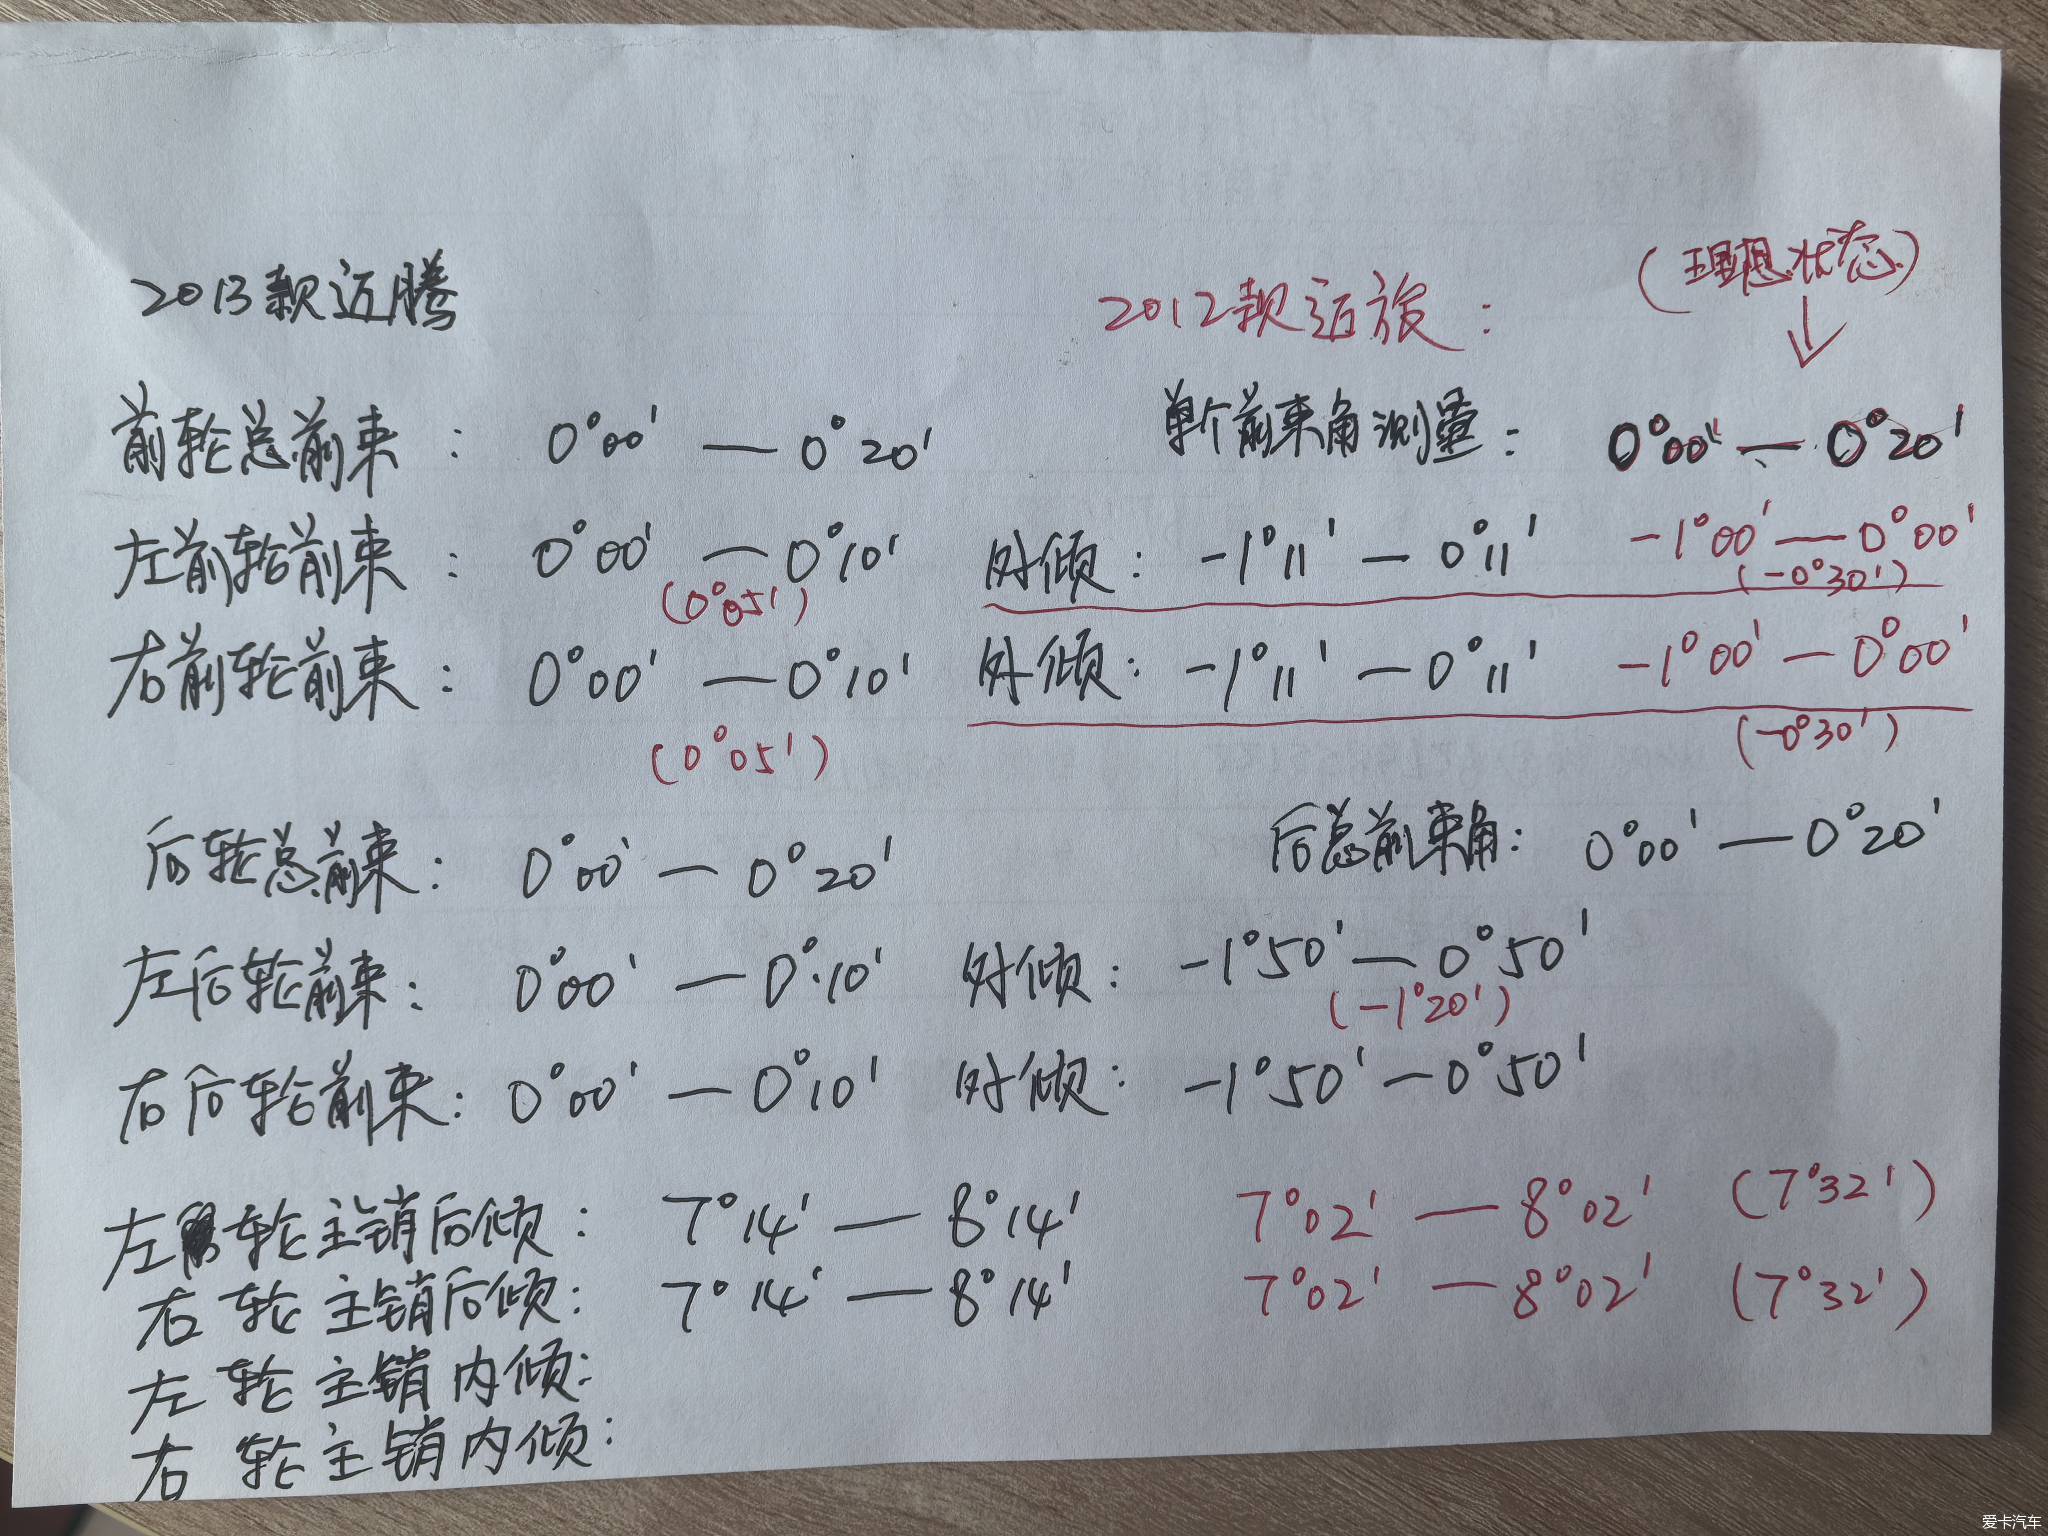 (理想状态)
2013款迈腾 2012款迈旅:
前轮总前束: 0°00′ — 0°20′ 单个前束角测量: 0°00′ — 0°20′
左前轮前束: 0°00′ — 0°10′ 外倾: -1°11′ — 0°11′ -1°00′ — 0°00′
(0°05′) (-0°30′)
右前轮前束: 0°00′ — 0°10′ 外倾: -1°11′ — 0°11′ -1°00′ — 0°00′
(0°05′) (-0°30′)
后轮总前束: 0°00′ — 0°20′ 后总前束角: 0°00′ — 0°20′
左后轮前束: 0°00′ — 0°10′ 外倾: -1°50′ — 0°50′
(-1°20′)
右后轮前束: 0°00′ — 0°10′ 外倾: -1°50′ — 0°50′
左轮主销后倾: 7°14′ — 8°14′ 7°02′ — 8°02′ (7°32′)
右轮主销后倾: 7°14′ — 8°14′ 7°02′ — 8°02′ (7°32′)
左轮主销内倾:
右轮主销内倾:
爱卡汽车